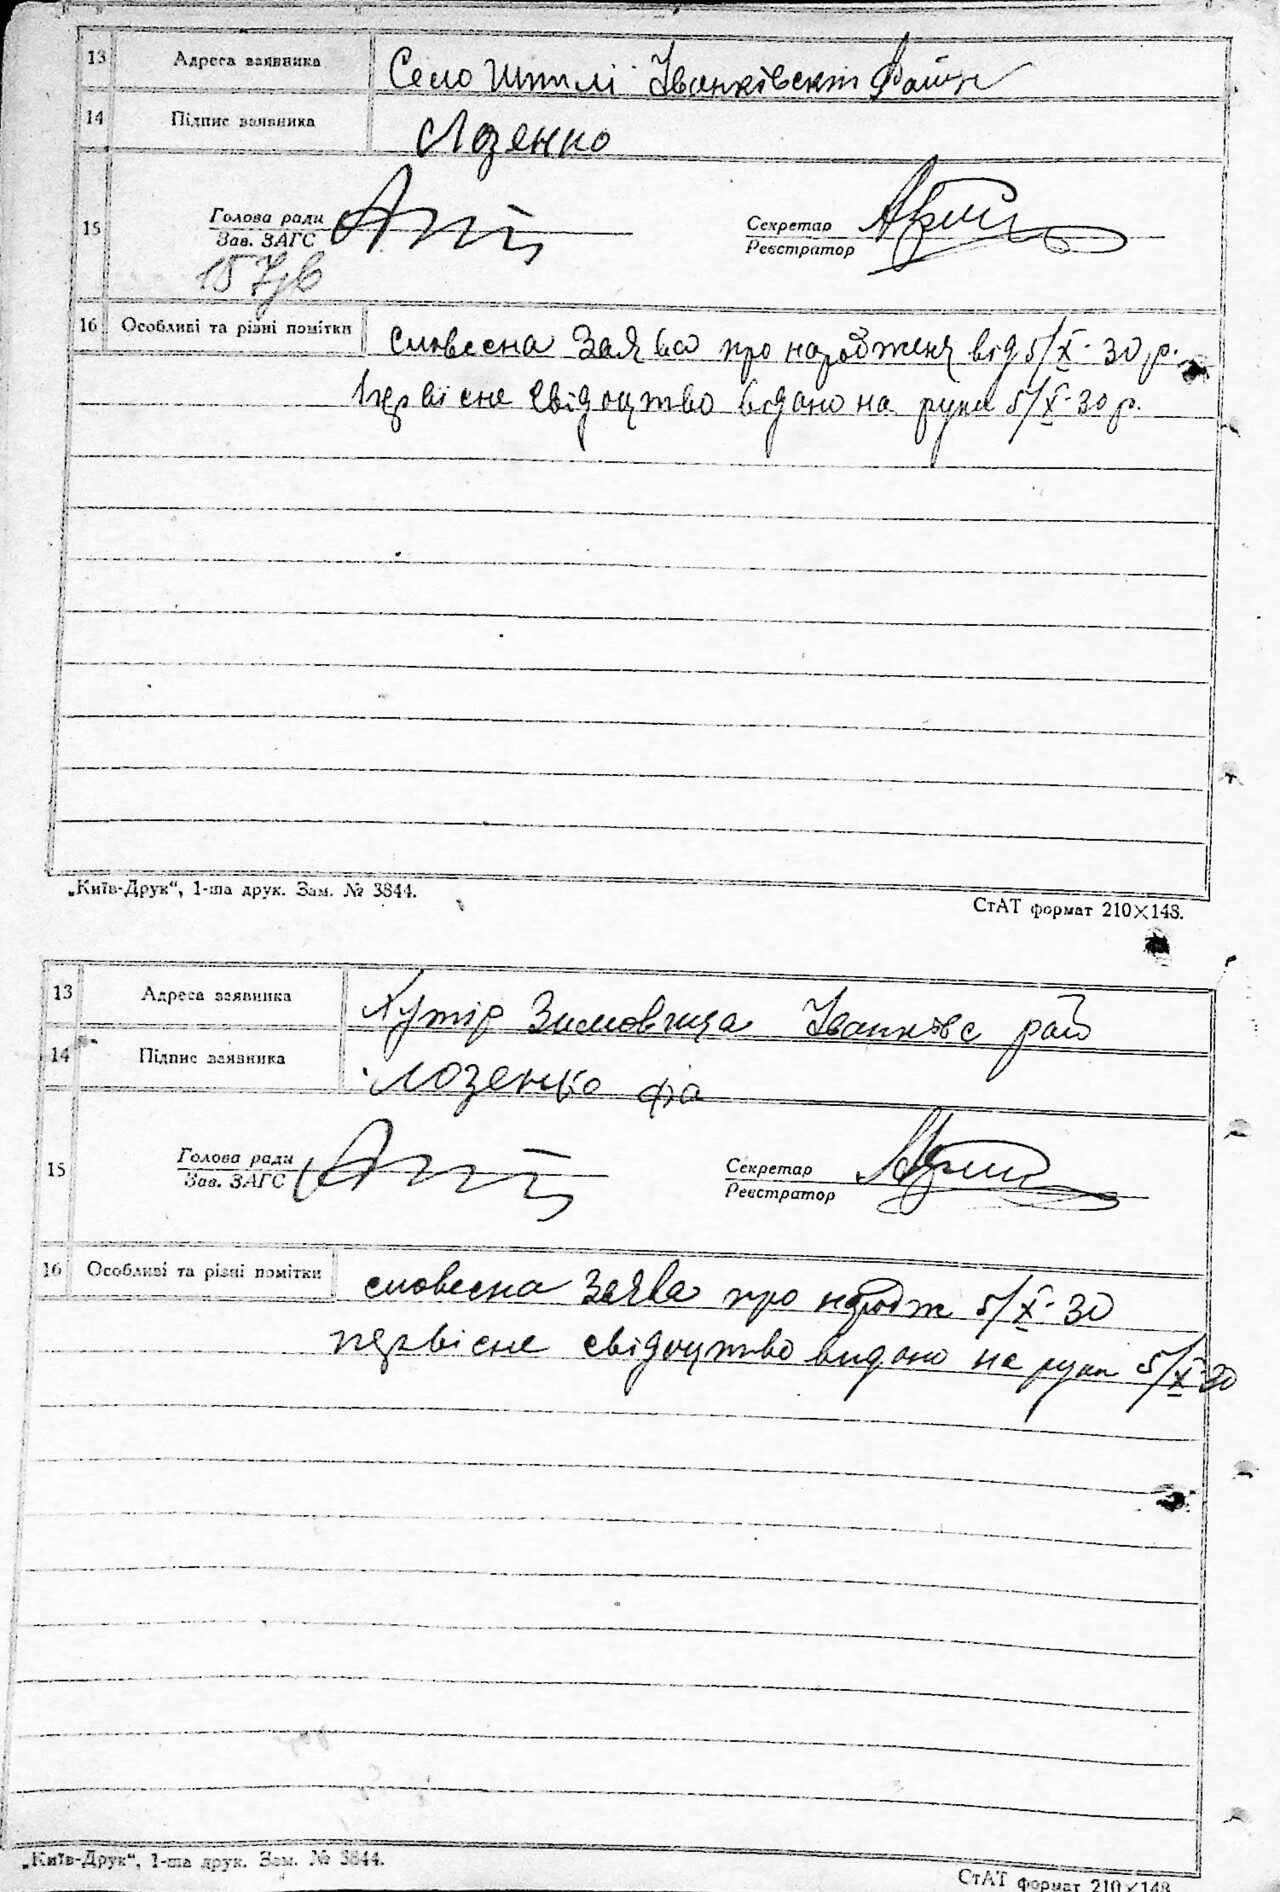 13 Адреса заявника Село Штилі Іванківский Район
14 Підпис заявника Лозенко
15 Голова ради Секретар
Зав. ЗАГС Реєстратор
16 Особливі та різні помітки словесна заява про народженя від 5/X-30 р.
первісне свідоцтво відано на руки 5/X-30 р.
„Київ-Друк“, 1-ша друк. Зам. № 3844.
СтАТ формат 210×148.
13 Адреса заявника Хутір Зимовища Іванковс рай
14 Підпис заявника Лозенко
15 Голова ради Секретар
Зав. ЗАГС Реєстратор
16 Особливі та різні помітки словесна заява про народж 5/X-30
первісне свідоцтво видано на руки 5/X-30
„Київ-Друк“, 1-ша друк. Зам. № 3844.
СтАТ формат 210×148